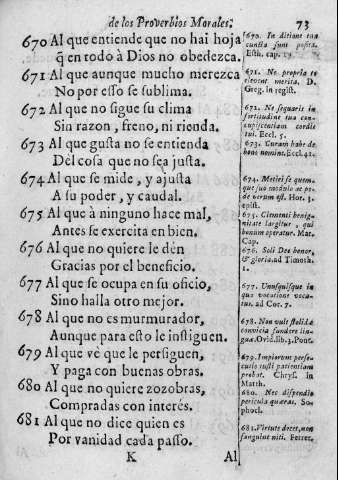 de los Proverbios Morales. 73
670 Al que entiende que no hai hoja
q̃ en todo à Dios no obedezca.
671 Al que aunque mucho merezca
No por esso se sublima.
672 Al que no sigue su clima
Sin razon, freno, ni rienda.
673 Al que gusta no se entienda
Del cosa que no sea justa.
674 Al que se mide, y ajusta
A su poder, y caudal.
675 Al que à ninguno hace mal,
Antes se exercita en bien.
676 Al que no quiere le dèn
Gracias por el beneficio.
677 Al que se ocupa en su oficio,
Sino halla otro mejor.
678 Al que no es murmurador,
Aunque para esto le instiguen.
679 Al que vè que le persiguen,
Y paga con buenas obras.
680 Al que no quiere zozobras,
Compradas con interès.
681 Al que no dice quien es
Por vanidad cada passo.
K Al
670. In ditione tua
cuncta sunt posita.
Esth. cap. 13.
671. Ne propria te
elevent merita. D.
Greg. in regist.
672. Ne sequaris in
fortitudine tua con-
cupiscentiam cordis
tui. Eccl. 5.
673. Curam habe de
bono nomine. Eccl. 41.
674. Metiri se quem-
que suo modulo ac pe-
de verum est. Hor. 1.
epist.
675. Clementi benig-
nitate largitur, qui
bonum operatur. Mar.
Cap.
676. Soli Deo honor,
& gloria. ad Timoth.
1.
677. Unusquisque in
qua vocatione voca-
tus. ad Cor. 7.
678. Non vult stolidæ
convicia fundere lin-
guæ. Ovid. lib. 3. Pont.
679. Impiorum perse-
cutio iusti patientiam
probat. Chrys. in
Matth.
680. Nec dispendio
pericula quæras. So-
phocl.
681. Virtute decet, non
sanguine niti.